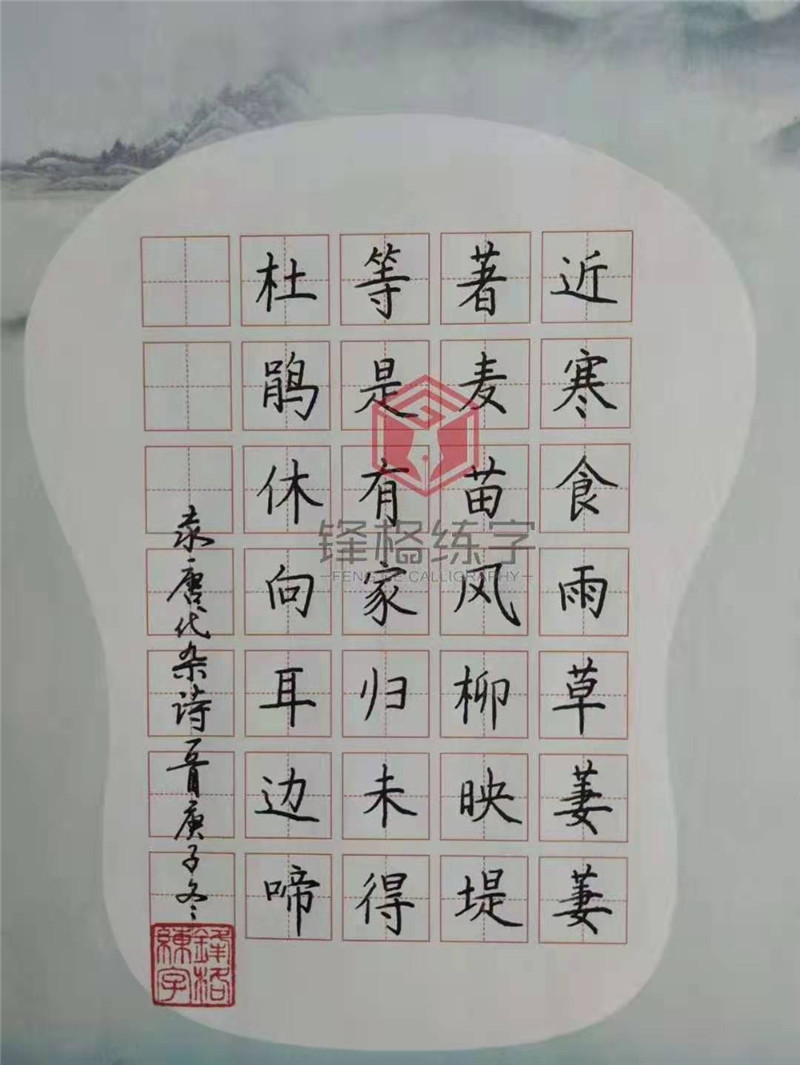 近寒食雨草萋萋
著麦苗风柳映堤
等是有家归未得
杜鹃休向耳边啼
录唐代杂诗一首庚子冬
锋格练字
FENG GE CALLIGRAPHY
鋒格
練字